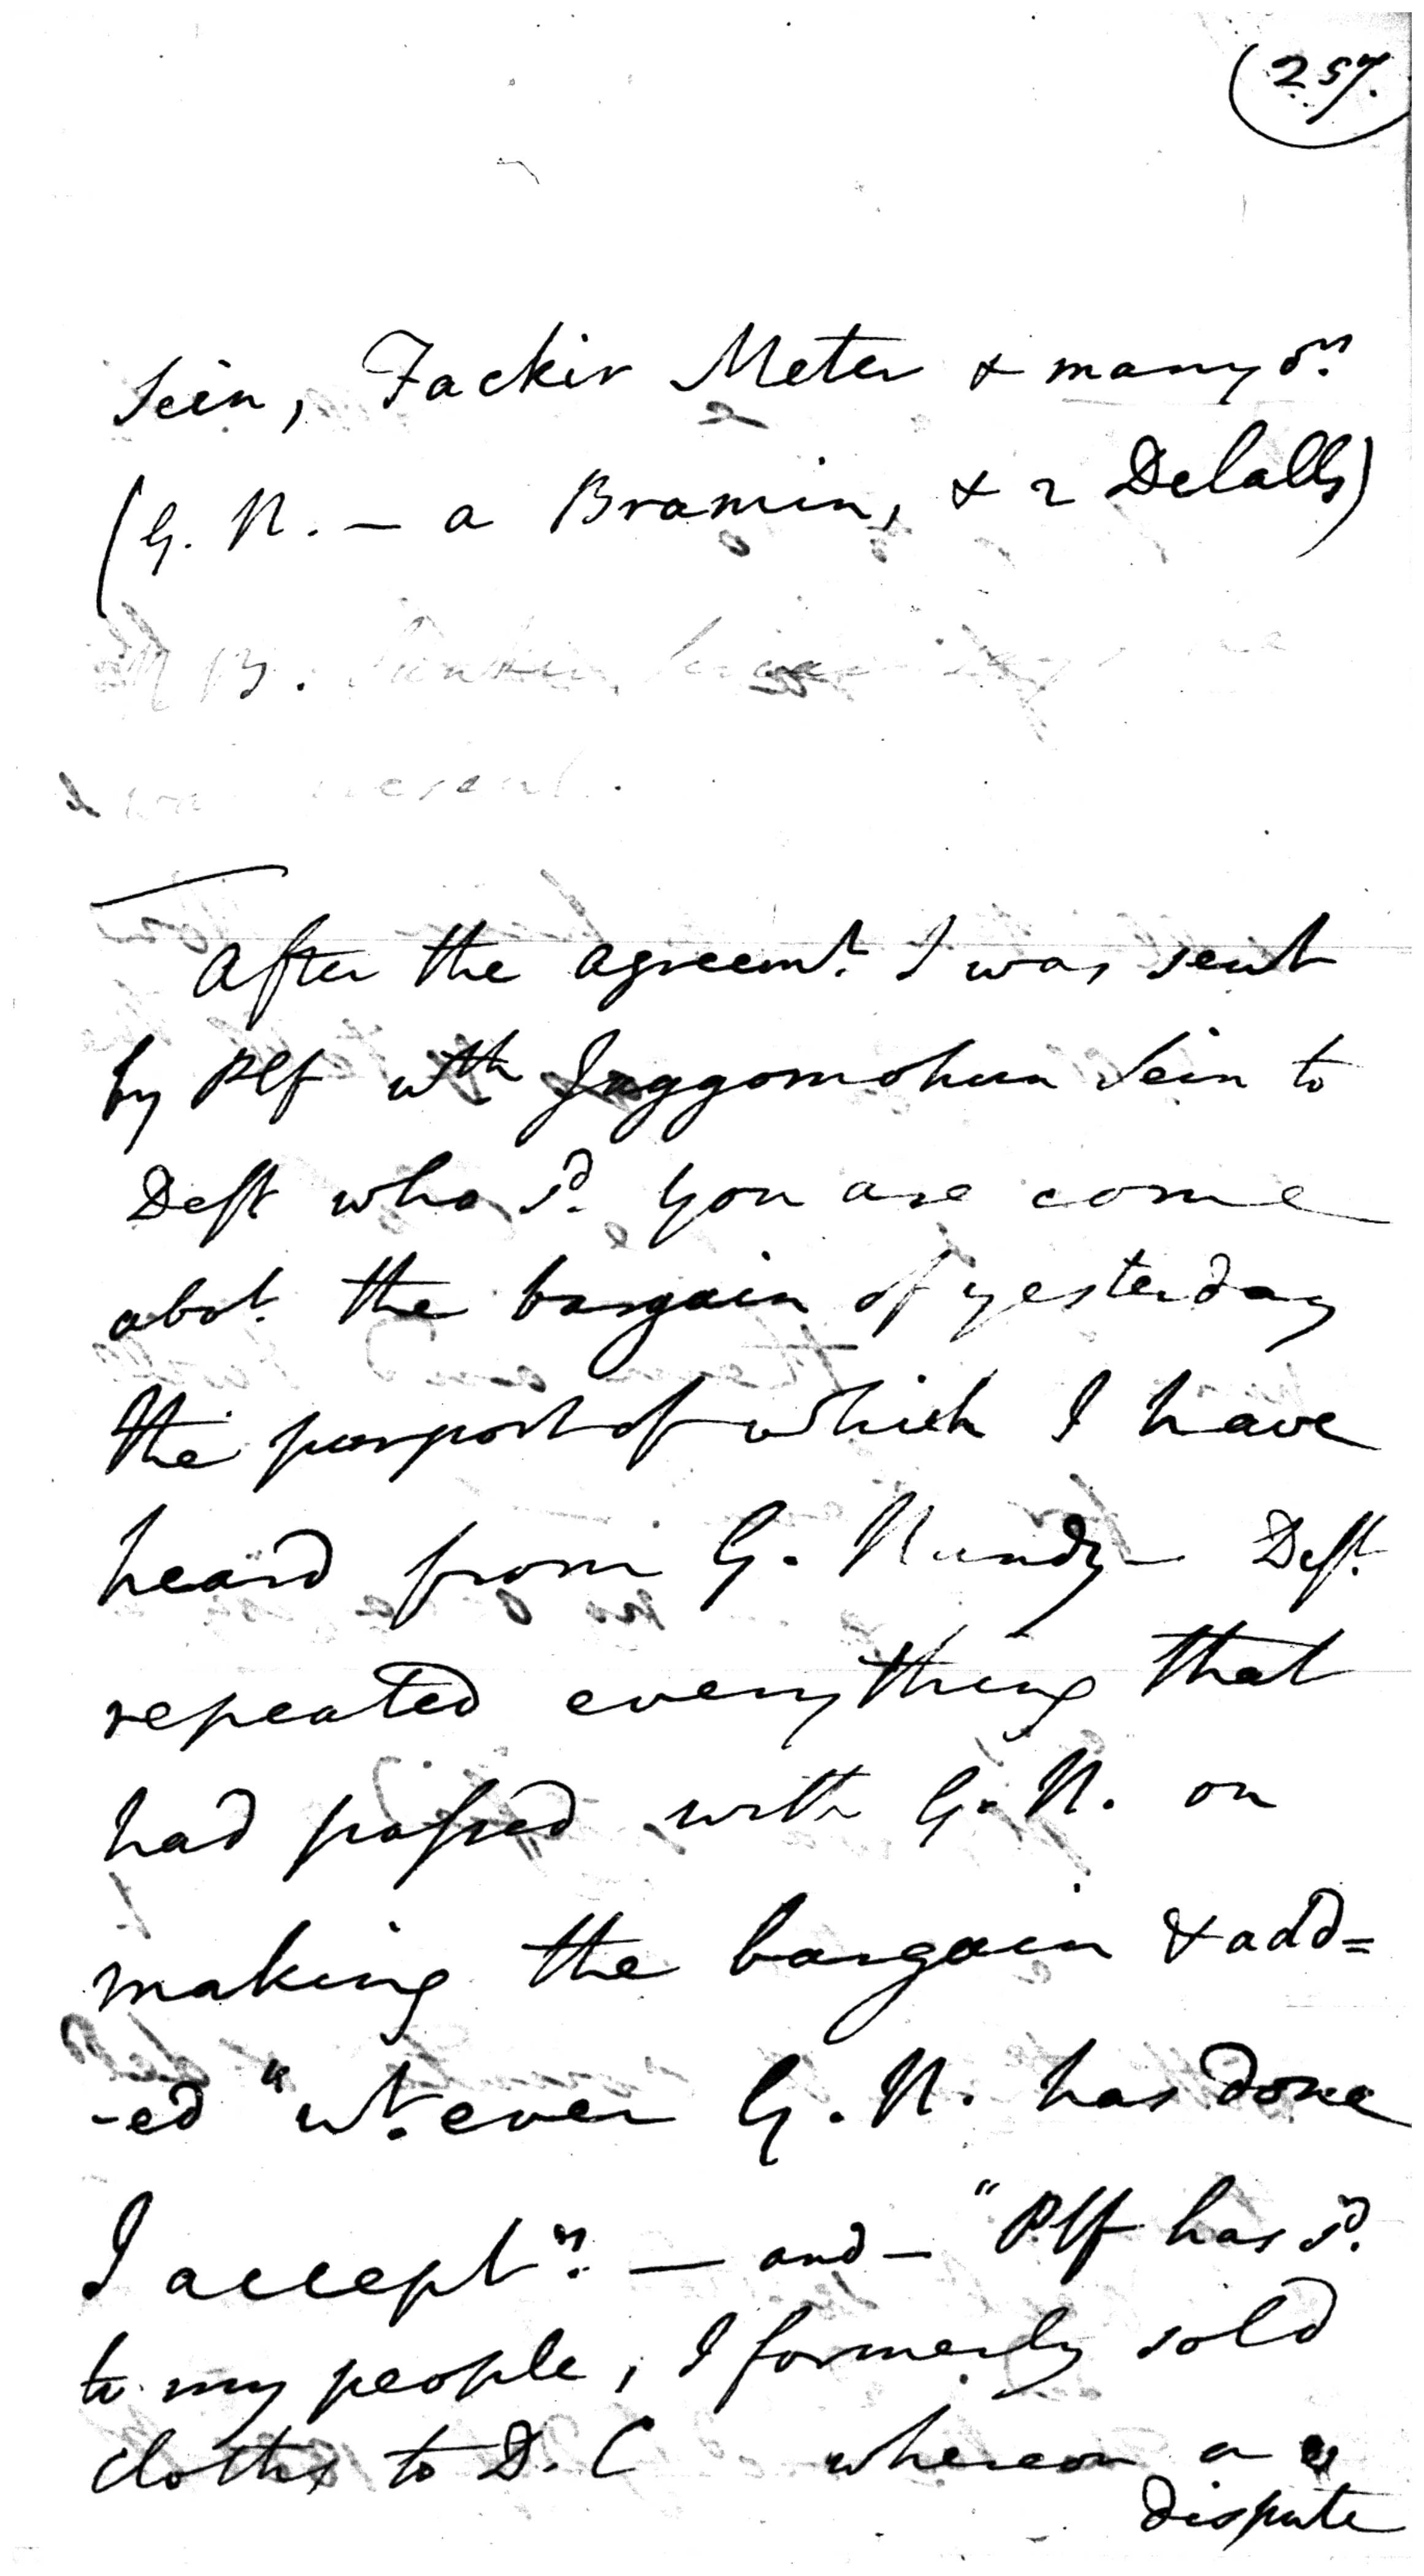 257.
Sein, Fackir Meter & many ors
(G. N. — a Bramin, & 2 Delalls)
N B.
present.
After the agreemt. I was sent
by Plf wth Juggomohun Sein to
Deft who sd. you are come
abot. the bargain of yesterday
the purport of which I have
heard from G. Nundy — Deft.
repeated every thing that
had passed with G. N. on
making the bargain & add=
-ed "wt. ever G. N. has done
I accept". — and — "Plf has sd.
to my people, I formerly sold
cloths to D. C whereon a
dispute